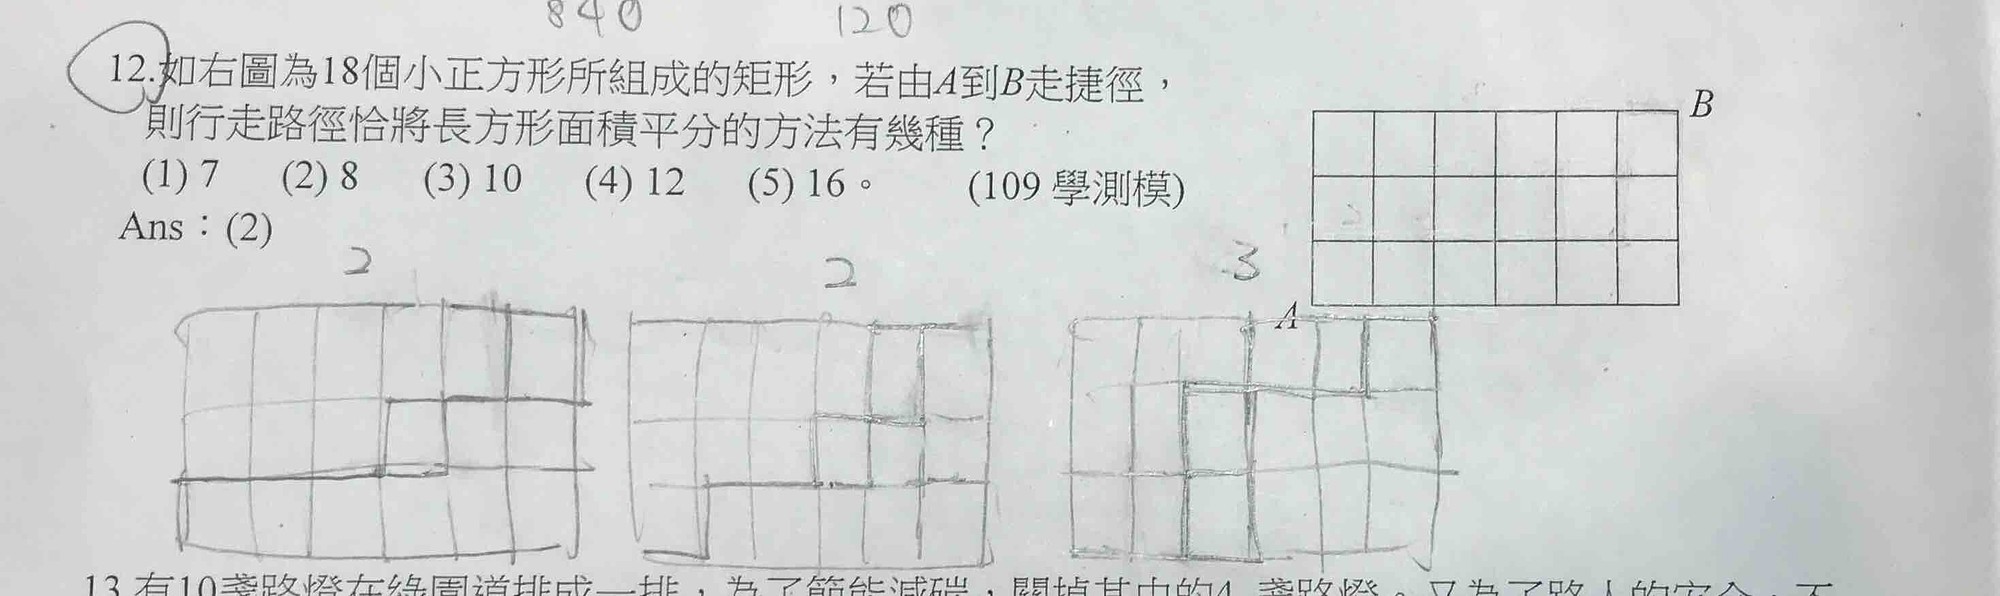 840 120
12.如右圖為18個小正方形所組成的矩形，若由A到B走捷徑，
則行走路徑恰將長方形面積平分的方法有幾種？
(1) 7 (2) 8 (3) 10 (4) 12 (5) 16。 (109 學測模)
Ans：(2)
B
A
2 2 3
13.有10盞路燈在綠園道排成一排，為了節能減碳，關掉其中的4 盞路燈。又為了路人的安全，不